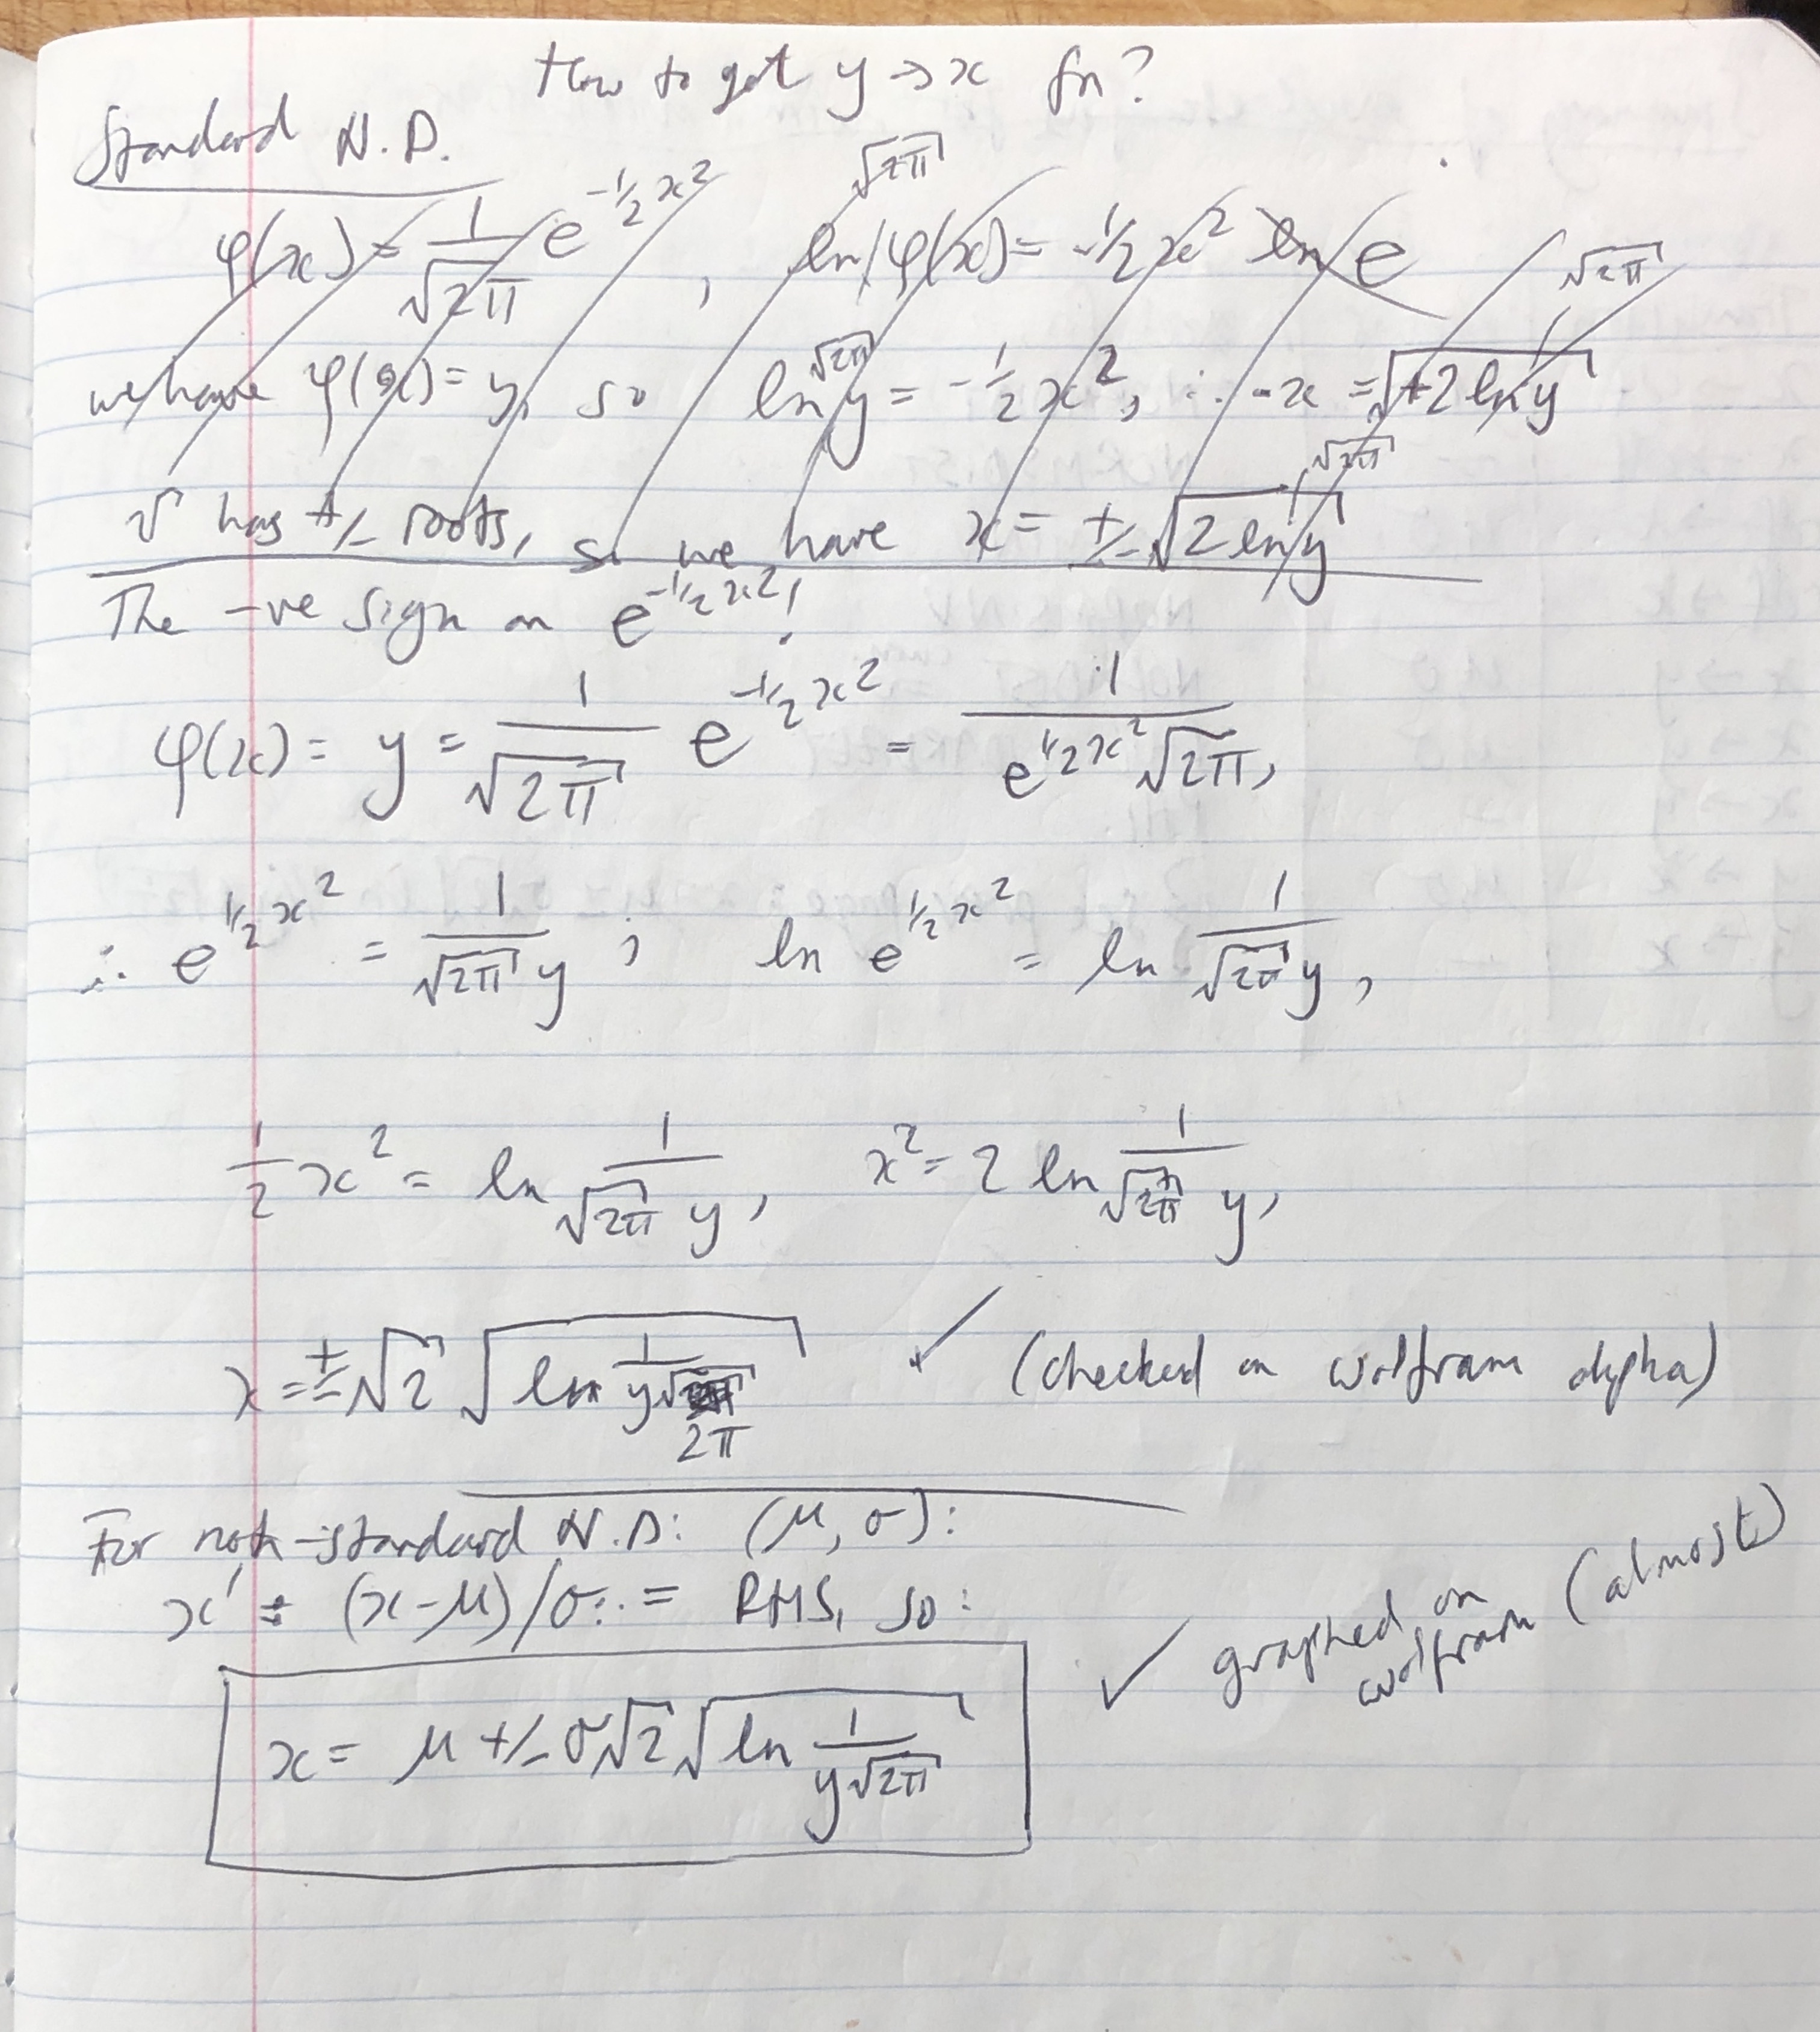 How to get y → x fn?
Standard N.D.
φ(x) = 1/√2π e^(-1/2 x²), ln √2π φ(x) = -1/2 x² ln e
we have φ(x) = y, so ln √2π y = -1/2 x², ∴ -x = √(+2 ln √2π y)
√ has +/- roots, so we have x = +/- √(2 ln √2π y)
The -ve sign on e^(-1/2 x²)!
φ(x) = y = 1/√2π e^(-1/2 x²) = 1/(e^(1/2 x²) √2π),
∴ e^(1/2 x²) = 1/(√2π y) ; ln e^(1/2 x²) = ln 1/(√2π y),
1/2 x² = ln 1/(√2π y), x² = 2 ln 1/(√2π y),
x = ± √2 √(ln 1/(y√2π)) ✓ (checked on wolfram alpha)
For not-standard N.D: (μ, σ):
x' = (x-μ)/σ ∴ = RHS, so:
x = μ +/- σ√2 √(ln 1/(y√2π)) ✓ graphed on wolfram (almost)